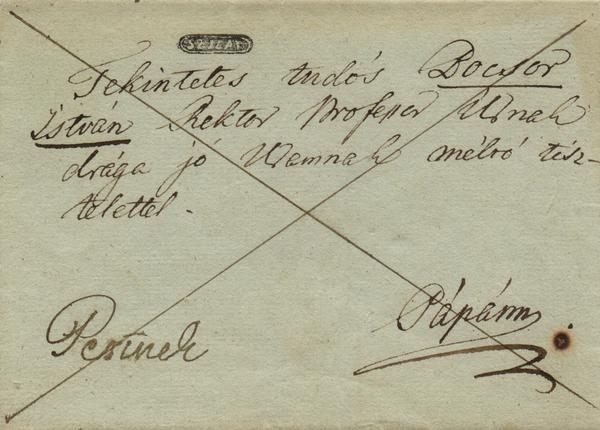 Tekintetes tudós Bocsor
István Rektor Professor Urnak
drága jó Uramnak méltó tisz-
telettel.
Pápánn.